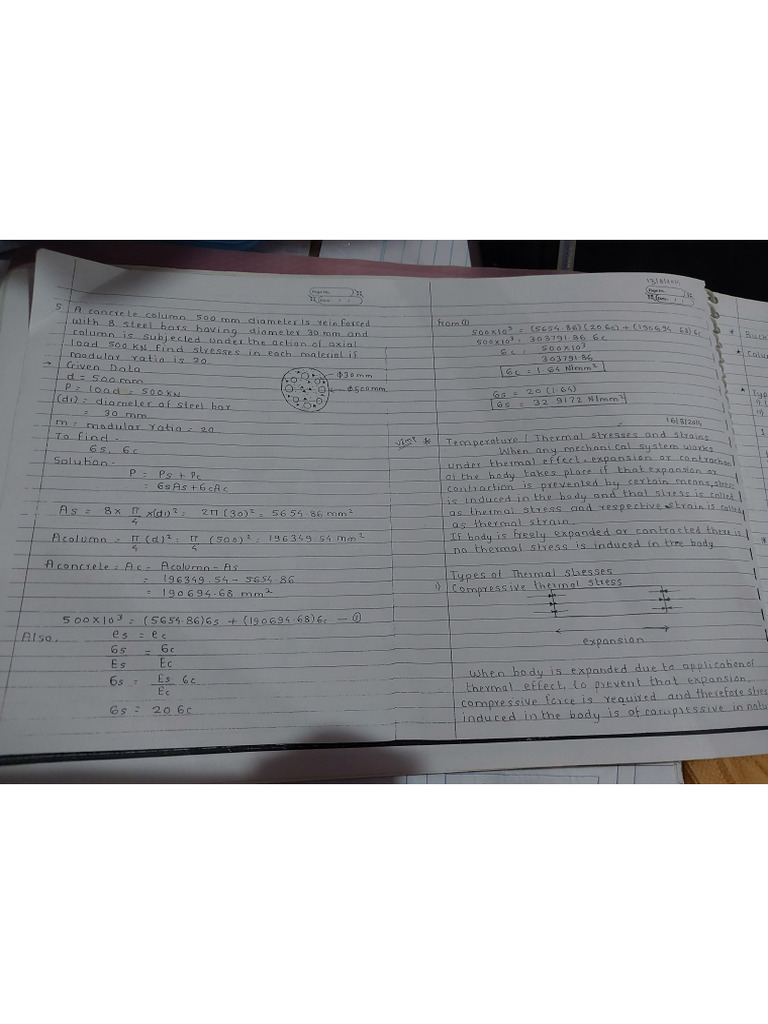 5. A concrete column 500 mm diameter is reinforced
with 8 steel bars having diameter 30 mm and
column is subjected under the action of axial
load 500 KN find stresses in each material if
modular ratio is 20
→ Given Data
d = 500 mm
P = load = 500 KN
(d1) = diameter of steel bar
= 30 mm
m = modular ratio = 20
ϕ30mm
ϕ500mm
To find -
6s, 6c
Solution -
P = Ps + Pc
= 6sAs + 6cAc
As = 8 × π/4 × (d1)² = 2π (30)² = 5654.86 mm²
Acolumn = π/4 (d)² = π/4 (500)² = 196349.54 mm²
Aconcrete = Ac = Acolumn - As
= 196349.54 - 5654.86
= 190694.68 mm²
500×10³ = (5654.86)6s + (190694.68)6c — ①
Also,
es = ec
6s/Es = 6c/Ec
6s = Es/Ec 6c
6s = 20 6c
Page No.
Date
Page No.
Date
from ①
500×10³ = (5654.86)(20 6c) + (190694.68) 6c
500×10³ = 303791.86 6c
6c = 500×10³/303791.86
6c = 1.64 N/mm²
6s = 20 (1.64)
6s = 32.9172 N/mm²
* Temperature / Thermal stresses and strains
When any mechanical system works
under thermal effect, expansion or contraction
of the body takes place if that expansion or
contraction is prevented by certain means, stress
is induced in the body and that stress is called
as thermal stress and respective strain is called
as thermal strain.
If body is freely expanded or contracted there is
no thermal stress is induced in the body
Types of Thermal stresses
i) Compressive thermal stress
expansion
When body is expanded due to application of
thermal effect, to prevent that expansion
compressive force is required and therefore stres
induced in the body is of compressive in natu